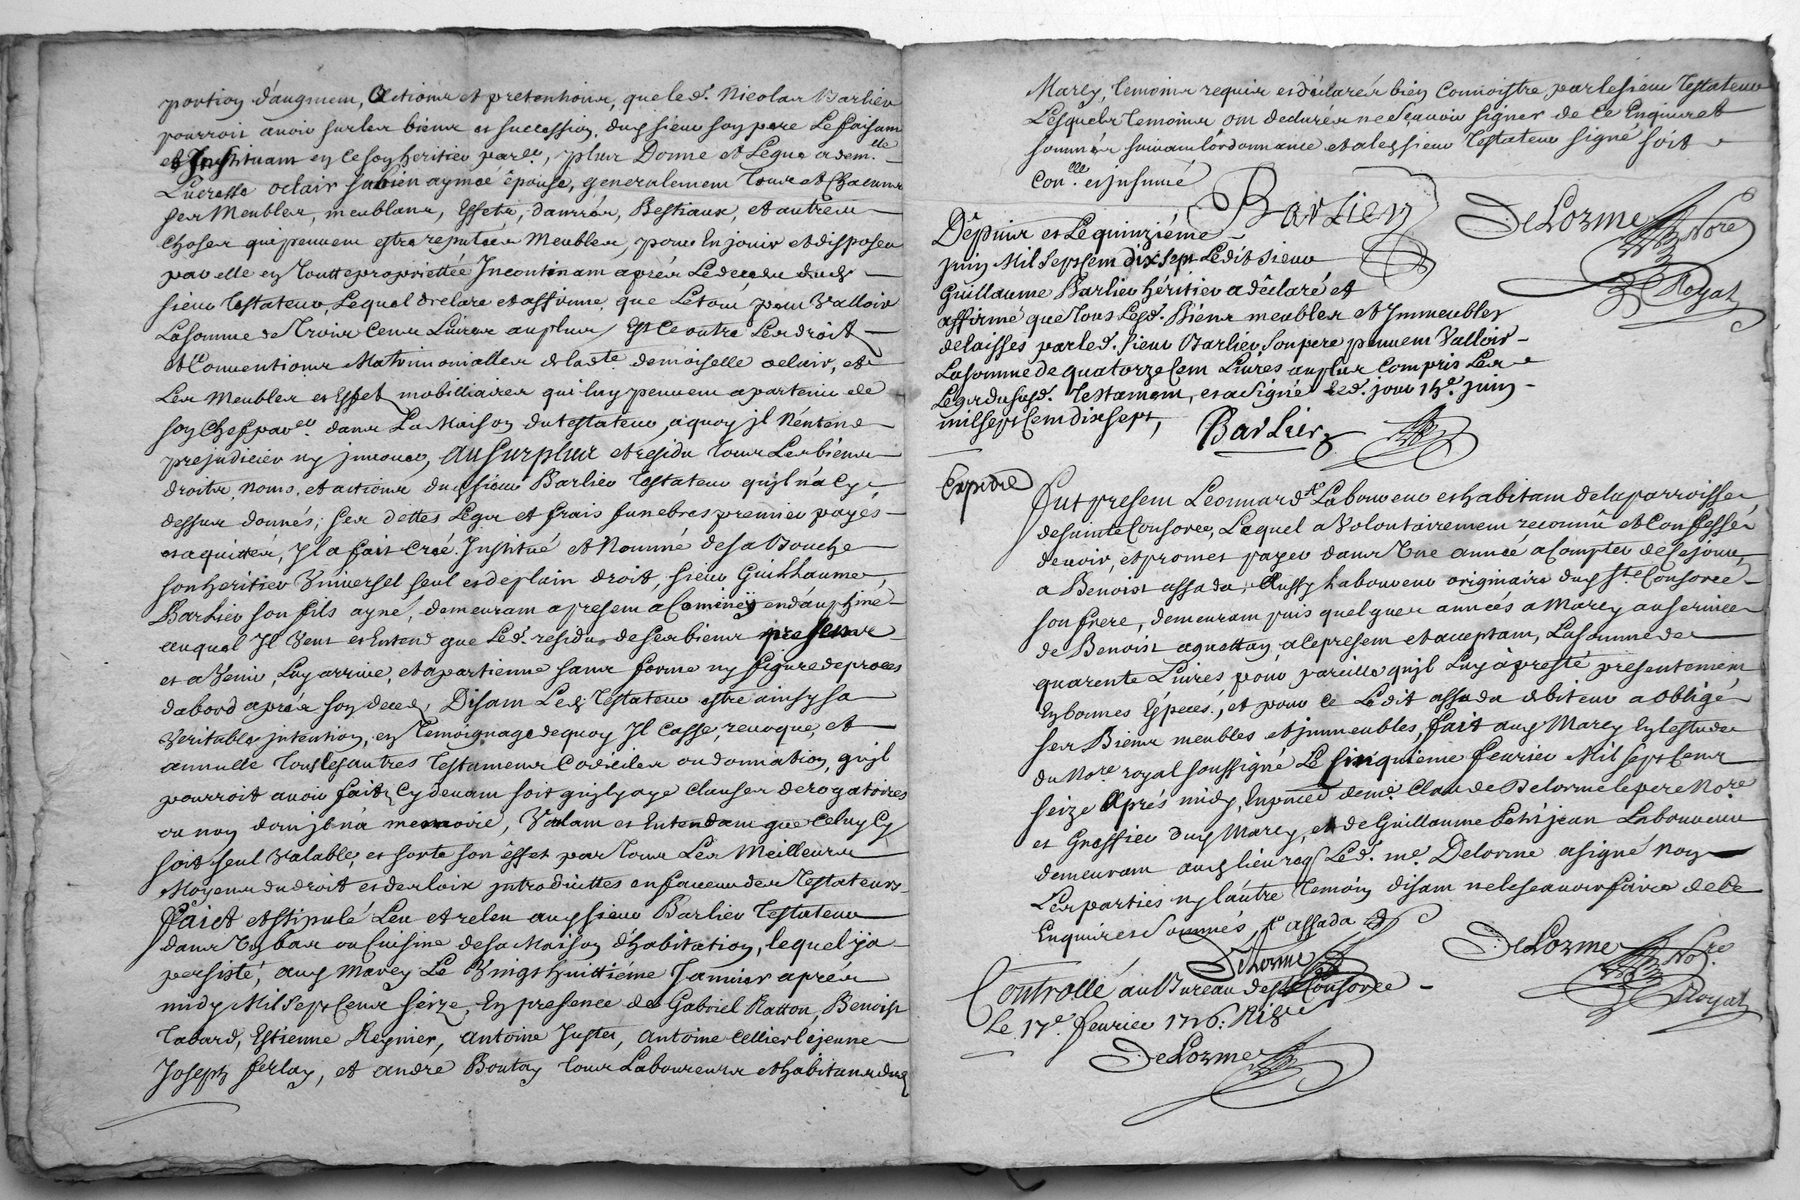 portion d'augment, Actions et pretentions, que led. Nicolas Barlier
pourroit avoir sur les biens et succession, dud. sieur son pere Le faisant
et Instituant en ce son heritier par.er, plus Donne et Legue a dem.lle
Lucresse oclair sa bien aymeé épouse, generalement Tous et Chacuns
ses Meubles, meublans, Effets, danrrés, Bestiaux, et autres
choses qui peuvent estre reputées Meubles, pour En jouir et disposer
par elle en Toutte proprietteé Incontinant aprés Le deceds dud.
sieur Testateur, Lequel declare et affirme que Le tout peut Valloir
La somme de Trois Cens Livres au plus, Et Ce outre Les droits
et Conventions Matrimonialles de lad.te demoiselle oclair, et
Les Meubles et Effets mobilliaires qui luy peuvent apartenir de
son Chef par.er dans La Maison du testateur, a quoy jl N'entend
prejudicier ny jnnover, Au Surplus et residu Tous Les biens
droits, noms, et actions dud. sieur Barlier Testateur qu'jl n'a Cy
dessus donnés; ses dettes Légas et frais funebres premier payés
et aquittés, jl a fait créé Institué et Nommé de sa Bouche
son heritier Vniversel seul et de plain droit, sieur Guilhaume
Barlier son fils ayné, demeurant a present a en dauphiné
auquel Il Veut et Entend que Led. residu de ses biens presens
et a Venir, Luy arrive, et apartienne sans forme ny figure de proces
dabord aprés son deced, Disant Led. Testateur estre ainsy sa
Veritable jntention, en Temoignage de quoy Il Casse, revoque, et
annulle Tous les autres Testamens Codiciles ou donnation, qu'jl
pourroit avoir fait Cy devant soit qu'jl y aye Clauses derogatoires
ou non dont jl n'a memoire, Voulant et Entendant que Celuy Cy
soit seul Valable, et sorte son êffet par Tous Les Meilleurs
Moyens du droit et des loix jntroduittes en faveur des Testateurs
Faict et stipulé Leu et releu aud. sieur Barlier Testateur
dans Vn bas ou Cuisine de sa Maison d'habitation, lequel y a
persisté, aud. Marcy Le Vingt huittiéme Janvier aprés
midy Mil Sept Cens seize, En presence de Gabriel Ratton, Benoist
Tabard, Estienne Regnier, Antoine Juster, Antoine Cellier le jeune
Joseph ferlay, et André Boutay Tous Laboureurs et habitans dud.
Marcy, Temoins requis et declarés bien Connoistre par le sieur Testateur
Lesquels Temoins ont declarés ne Sçauoir signer de ce Enquis et
sommés suivant l'ordonnance et aled. sieur Testateur signé soit
Con.llé et jnsinué
Barlier
DeLorme Nore
Royal
Dêpuis et Le quinziéme
juin Mil Sept cent dix Sept Ledit sieur
Guillaume Barlier héritier a déclaré et
affirmé que Tous Lesd. Biens meubles et Immeubles
delaissés par led. sieur Barlier, Son pere peuvent Valloir
La somme de quatorze Cent Livres au plus Compris Les
Légas du susd. Testament, et a signé Led. jour 15.e juin
mil Sept Cent dix sept,
Barlier
Expedié
Fut present Leonnard Laboureur et habitant de la parroisse
de Sainte Consorce, Lequel a Volontairement reconnu et Confessé
devoir, et promet payer dans Vne année a Compter de Ce jour,
a Benoist assada, Aussy Laboureur originaire dud. S.te Consorce
son frere, demeurant puis quelques années a Marcy au service
de Benoist aquettan, a Ce present et acceptant, La somme de
quarente Livres pour pareille qu'jl Luy à presté presentement
En bonnes Especes, et pour Ce Ledit assada debiteur a obligé
ses Biens meubles et jmmeubles, fait aud. Marcy En l'estude
du Nore. royal soussigné Le Sinquieme fevrier Mil Sept Cens
seize Aprés midy, En presce de me. Claude Delorme le pere Nore
et Greffier dud. Marcy, et de Guillaume petitjean Laboureur
demeurant aud. lieu req. Led. me. Delorme a signé Non
Les parties ny l'autre Temoin disant ne le sçavoir faire de ce
Enquis et Sommés, assada
DeLorme
DeLorme Nore.
Royal
Controllé au Bureau de ste Consorce
Le 17e. fevrier 1716.
DeLorme